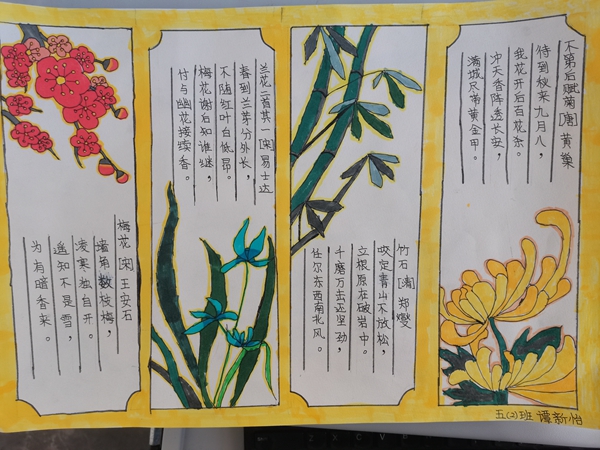 不第后赋菊[唐]黄巢
待到秋来九月八，
我花开后百花杀。
冲天香阵透长安，
满城尽带黄金甲。
竹石[清]郑燮
咬定青山不放松，
立根原在破岩中。
千磨万击还坚劲，
任尔东西南北风。
兰花二首其一[宋]易士达
春到兰芽分外长，
不随红叶自低昂。
梅花谢后知谁继，
付与幽花接续香。
梅花[宋]王安石
墙角数枝梅，
凌寒独自开。
遥知不是雪，
为有暗香来。
五(2)班 谭新怡